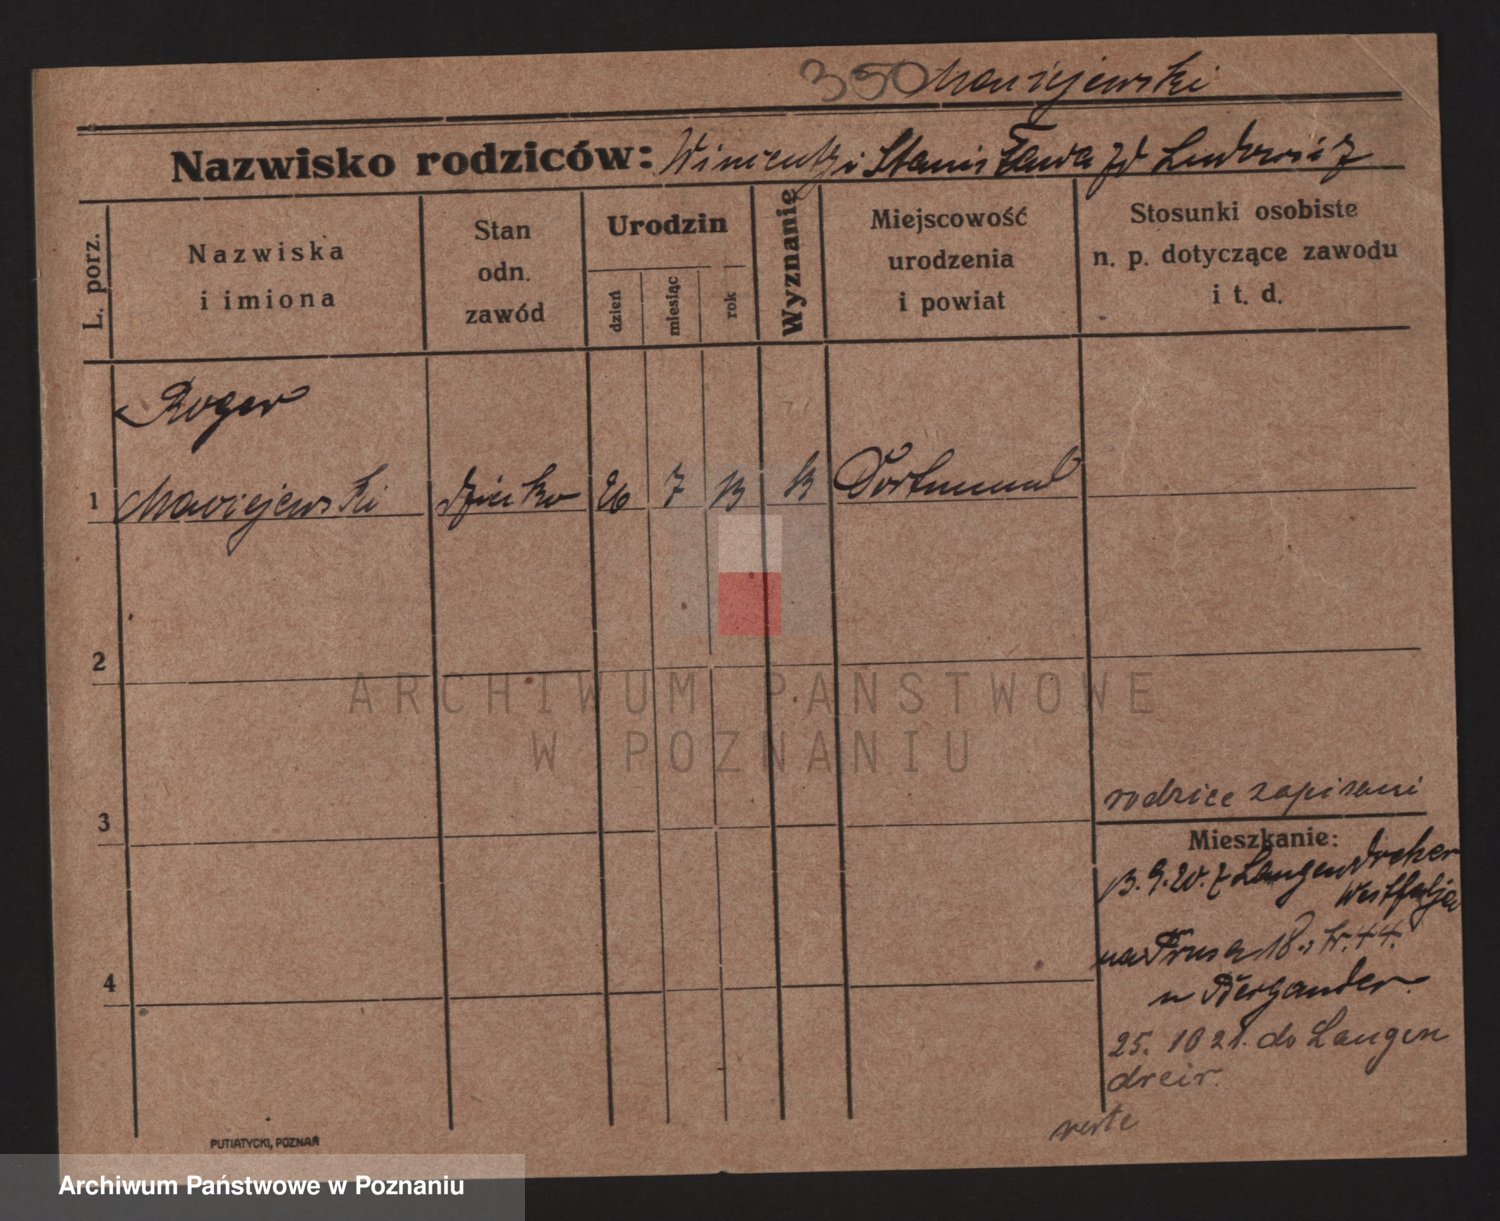 350 Maciejewski
Nazwisko rodziców: Wincenty i Stanisława zd Ludowicz
L. porz.
Nazwiska
i imiona
Stan
odn.
zawód
Urodzin
dzień
miesiąc
rok
Wyznanie
Miejscowość
urodzenia
i powiat
Stosunki osobiste
n. p. dotyczące zawodu
i t. d.
Roger
1 Maciejewski dziecko 26 7 13 k Dortmund
2
3
4
rodzice zapisani
Mieszkanie:
13.9.20. z Langendreher
Westfalja
na Prusa 18. tr. 44.
u Piergander.
25. 10 21. do Langen
dreir.
verte
PUTIATYCKI, POZNAŃ
ARCHIWUM PAŃSTWOWE
W POZNANIU
Archiwum Państwowe w Poznaniu